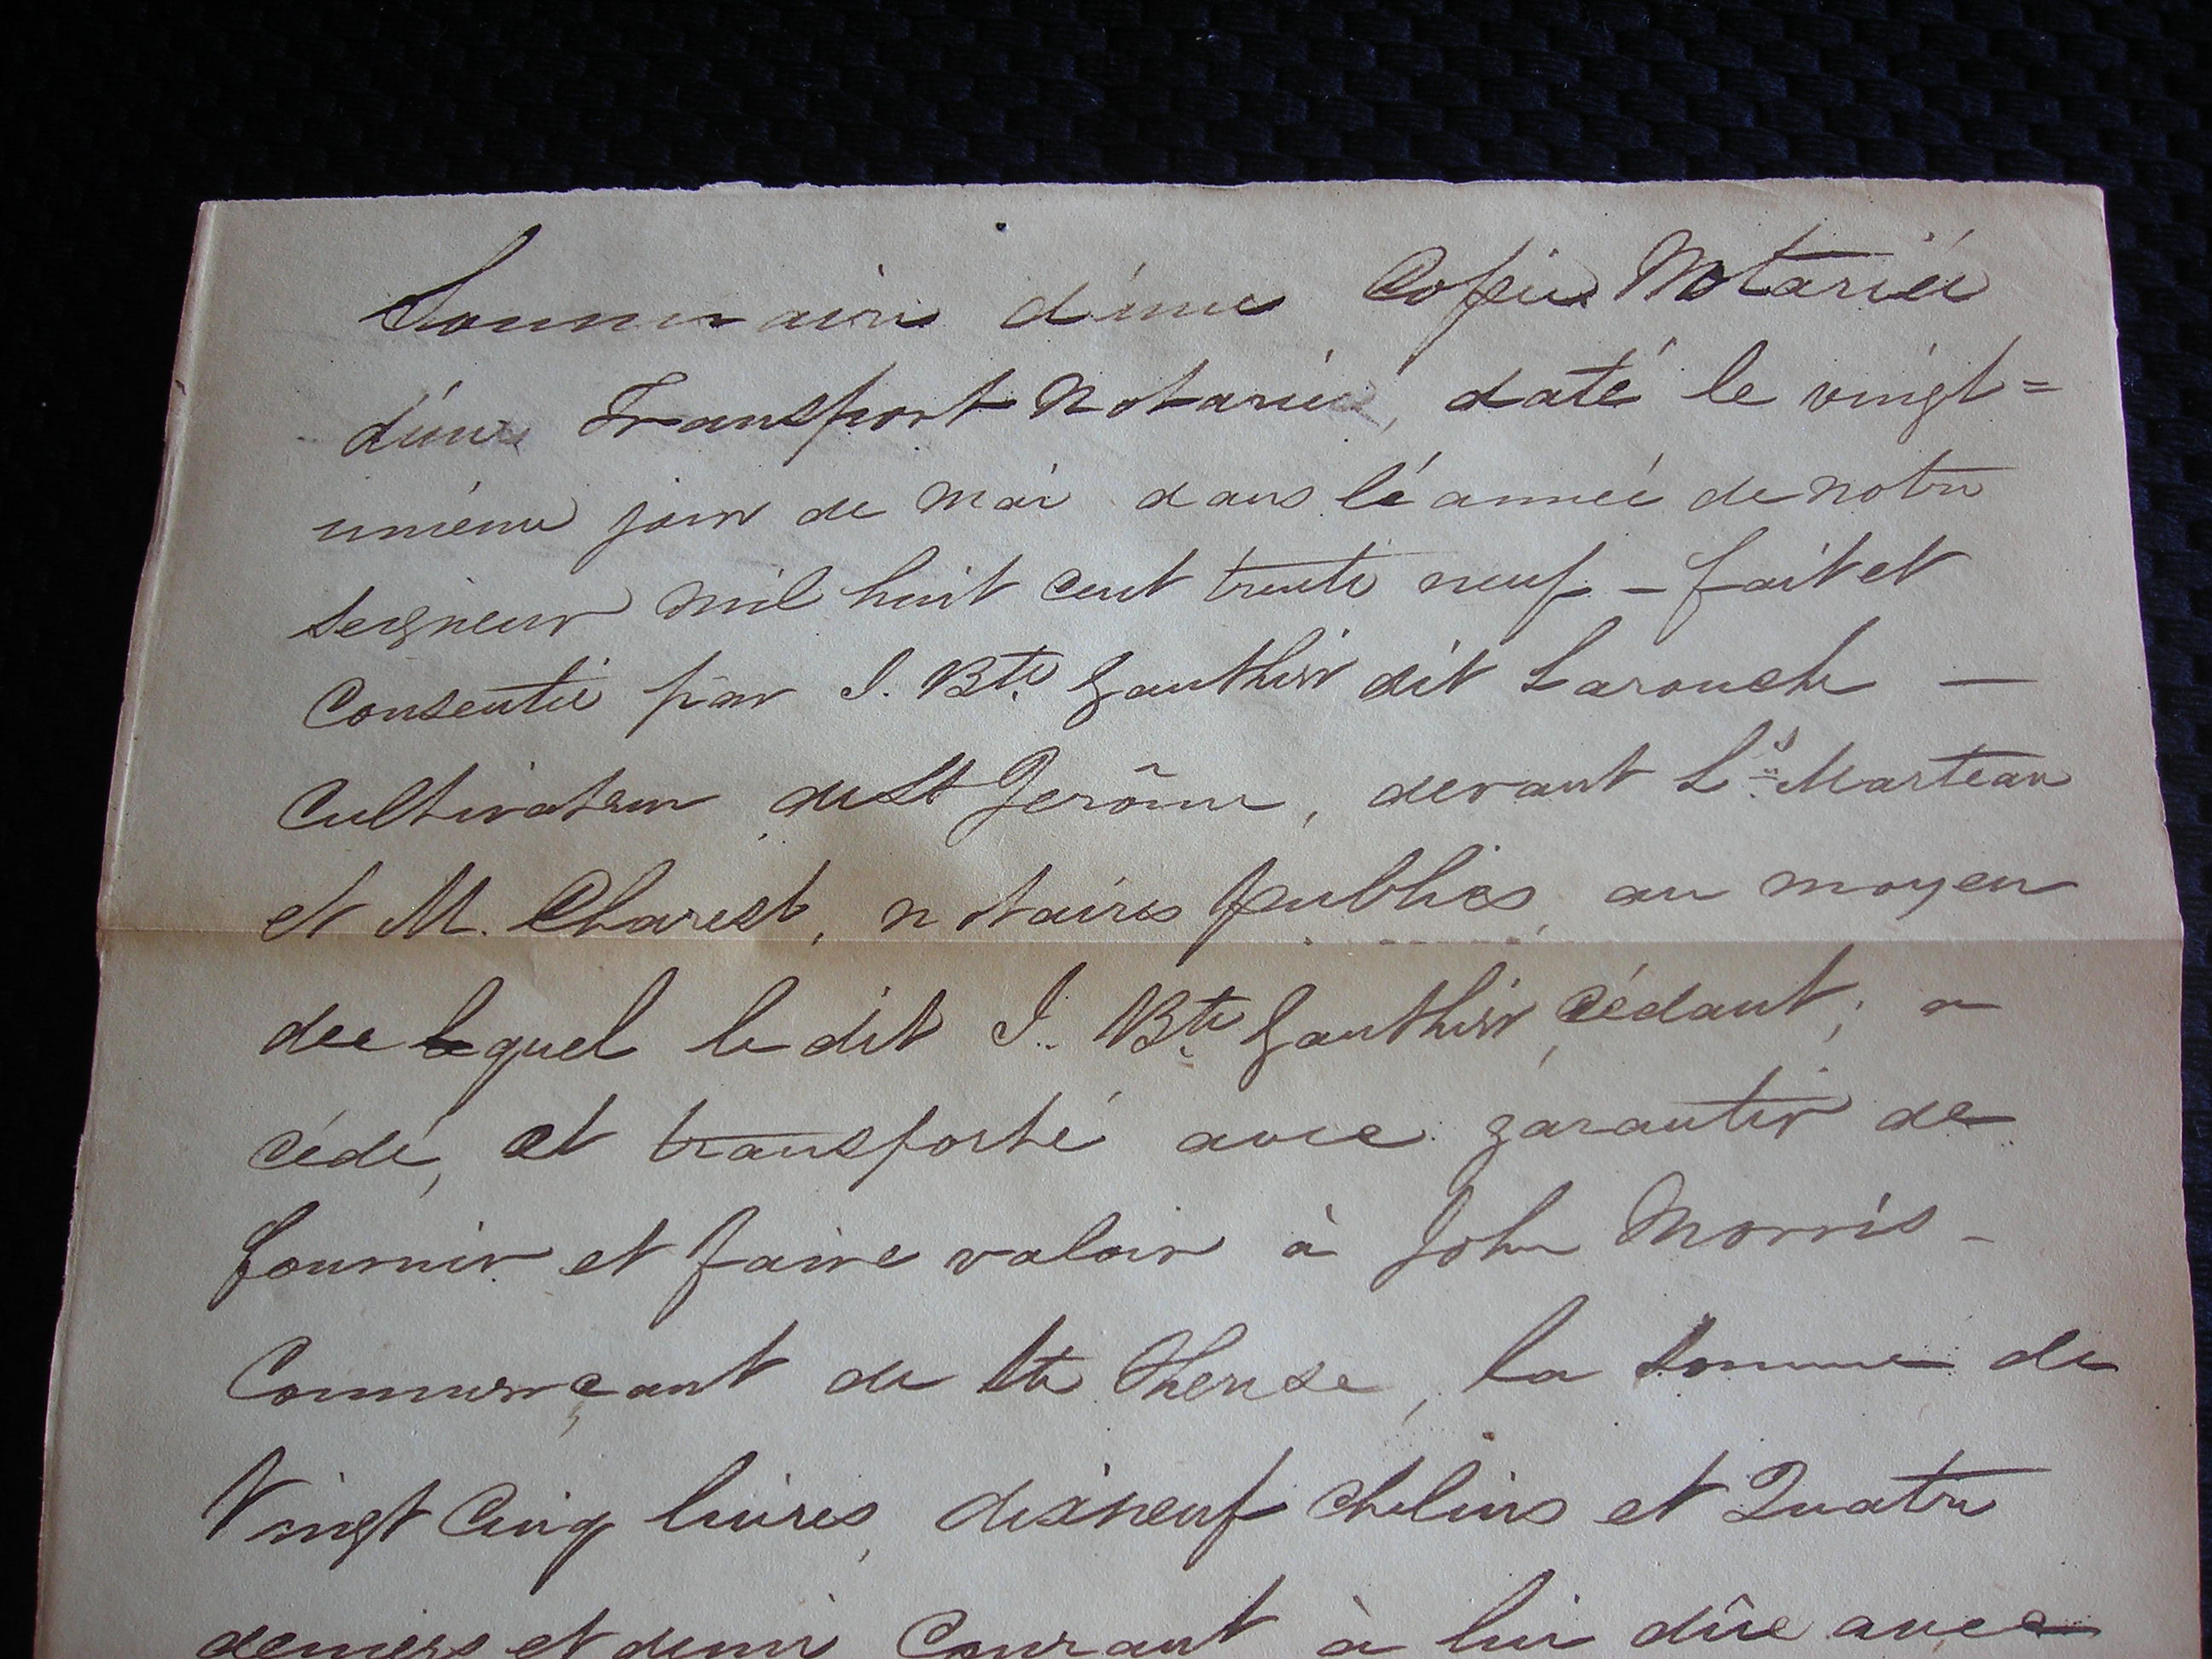 Sommaire d'une Copie Notariée
d'une Transport Notarié, daté le vingt=
unième jour de Mai dans l'année de notre
seigneur mil huit cent trente neuf – fait et
Consentie par J. Bte Gauthier dit Larouche —
Cultivateur de St Jerôme, devant Ls Marteau
et M. Charest, notaires publics, au moyen
de lequel le dit J. Bte Gauthier, cédant; a
cédé, et transporté avec garantir de
fournir et faire valoir à John Morris –
Commerçant de Ste Therese, la somme de
Vingt Cinq livres, dixneuf chelins et Quatre
deniers et demi Courant à lui dûe avec